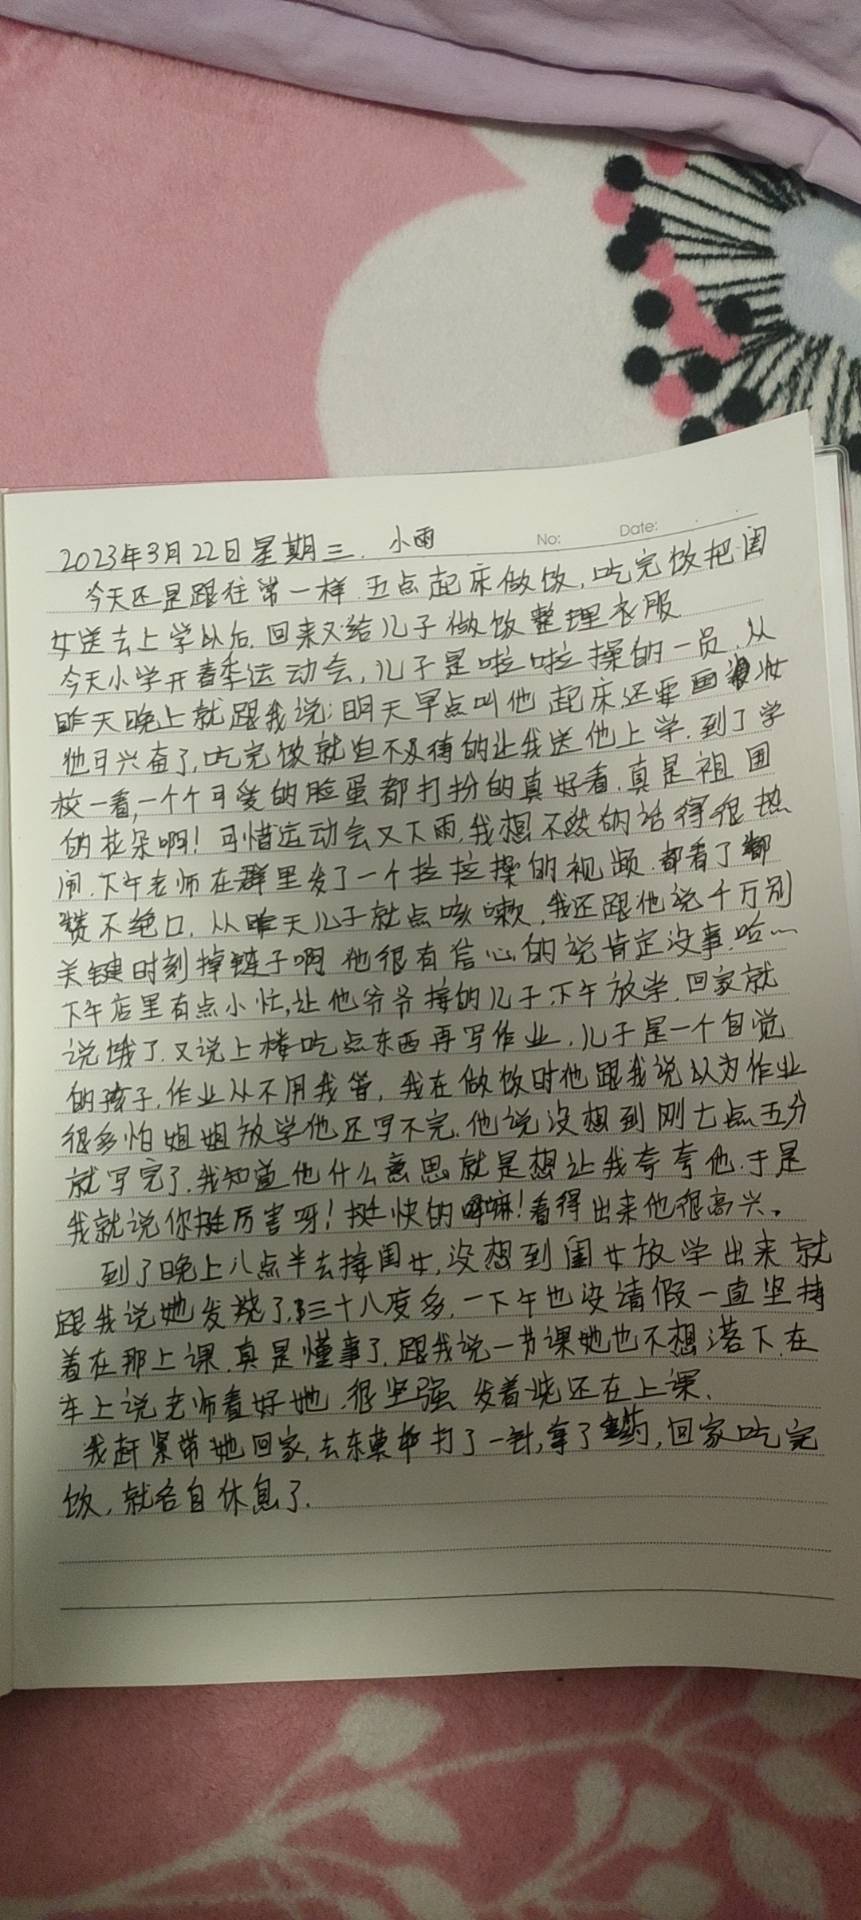 No: Date:
2023年3月22日 星期三. 小雨
今天还是跟往常一样 五点起床做饭, 吃完饭把闺
女送去上学以后. 回来又给儿子做饭整理衣服
今天小学开春季运动会, 儿子是啦啦操的一员. 从
昨天晚上就跟我说: 明天早点叫他起床还要画妆
他可兴奋了, 吃完饭就迫不及待的让我送他上学. 到了学
校一看, 一个个可爱的脸蛋都打扮的真好看. 真是祖国
的花朵啊! 可惜运动会又下雨, 我想不然的话得很热
闹. 下午老师在群里发了一个拉拉操的视频. 都看了都
赞不绝口. 从昨天儿子就点咳嗽, 我还跟他说千万别
关键时刻掉链子啊 他很有信心的说肯定没事. 哈…
下午店里有点小忙, 让他爷爷接的儿子. 下午放学. 回家就
说饿了. 又说上楼吃点东西再写作业. 儿子是一个自觉
的孩子, 作业从不用我管, 我在做饭时他跟我说以为作业
很多怕姐姐放学他还写不完. 他说没想到刚七点五分
就写完了. 我知道他什么意思就是想让我夸夸他. 于是
我就说你挺厉害呀! 挺快的嘛! 看得出来他很高兴。
到了晚上八点半去接闺女, 没想到闺女放学出来就
跟我说她发烧了. 三十八度多. 一下午也没请假一直坚持
着在那上课. 真是懂事了. 跟我说一节课她也不想落下. 在
车上说老师看好她. 很坚强 发着烧还在上课.
我赶紧带她回家. 去东莫 打了一针, 拿了药, 回家吃完
饭, 就各自休息了.